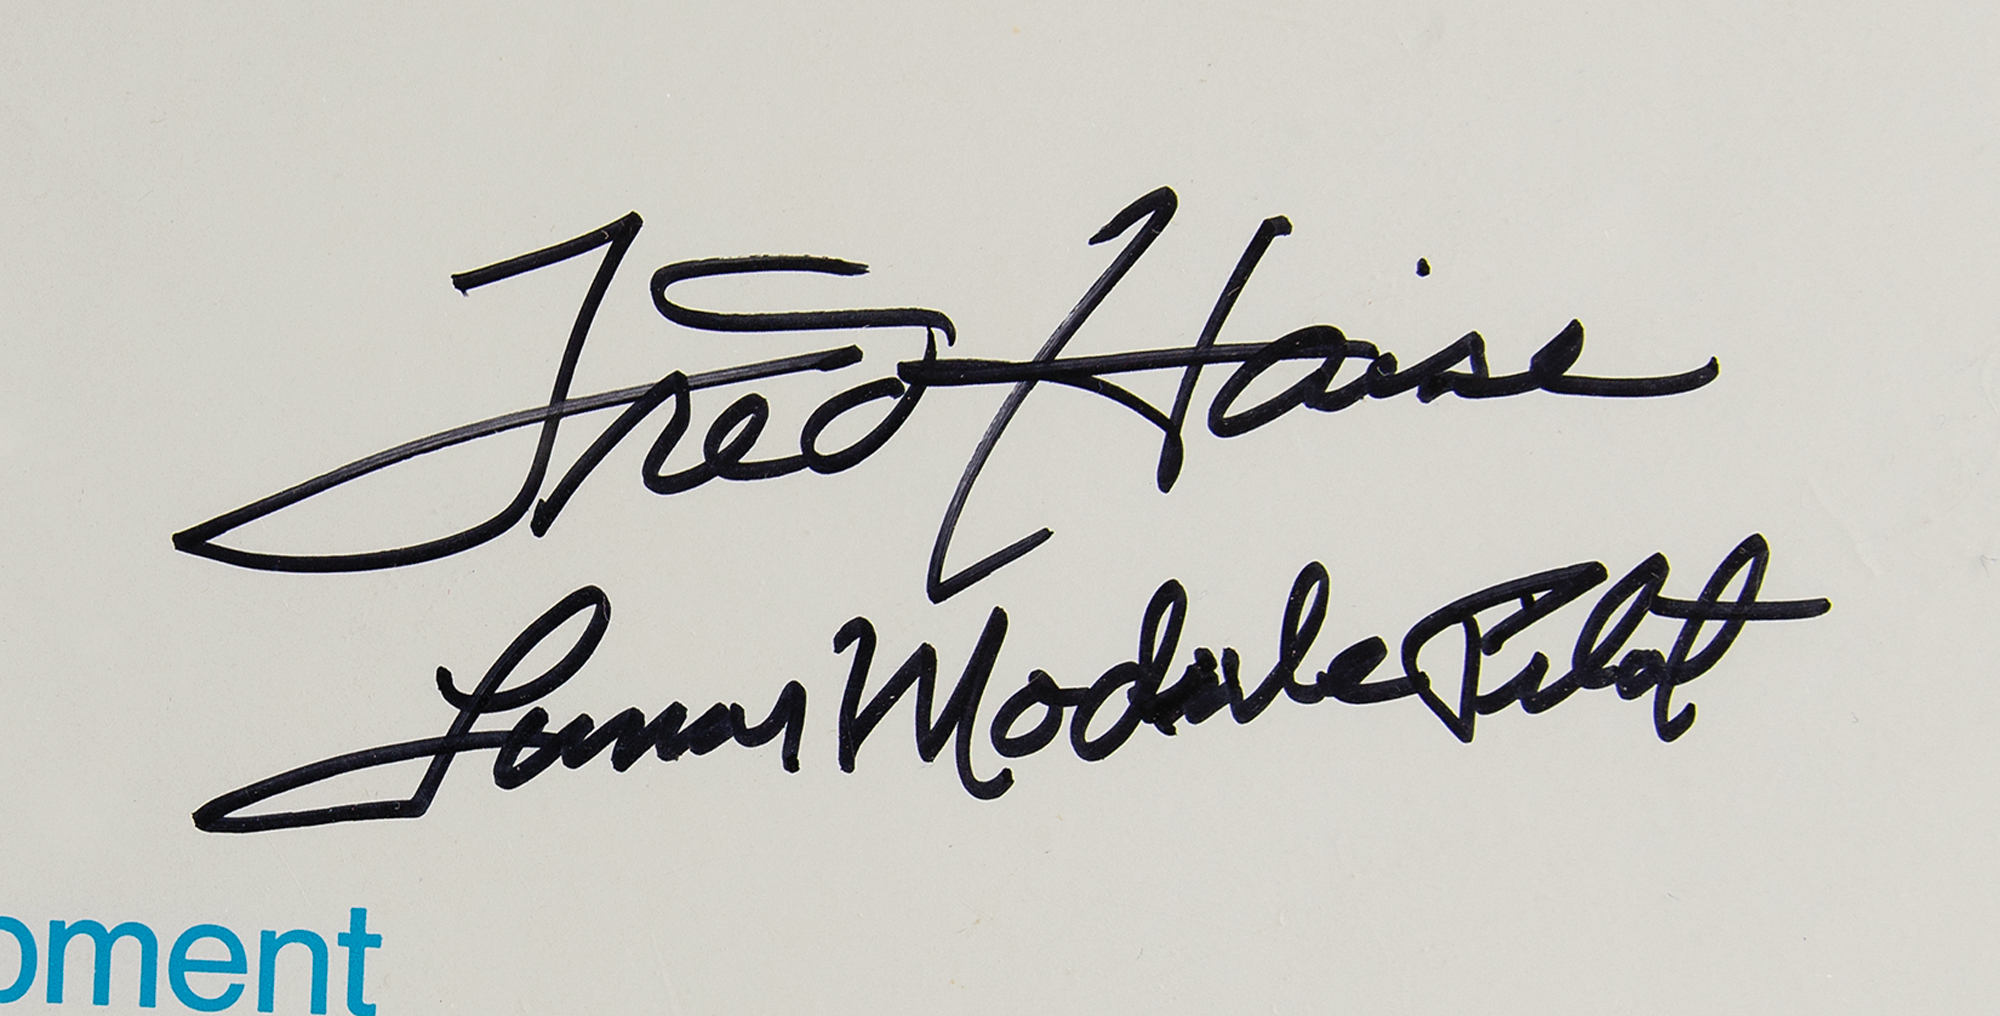 Fred Haise
Lunar Module Pilot
pment